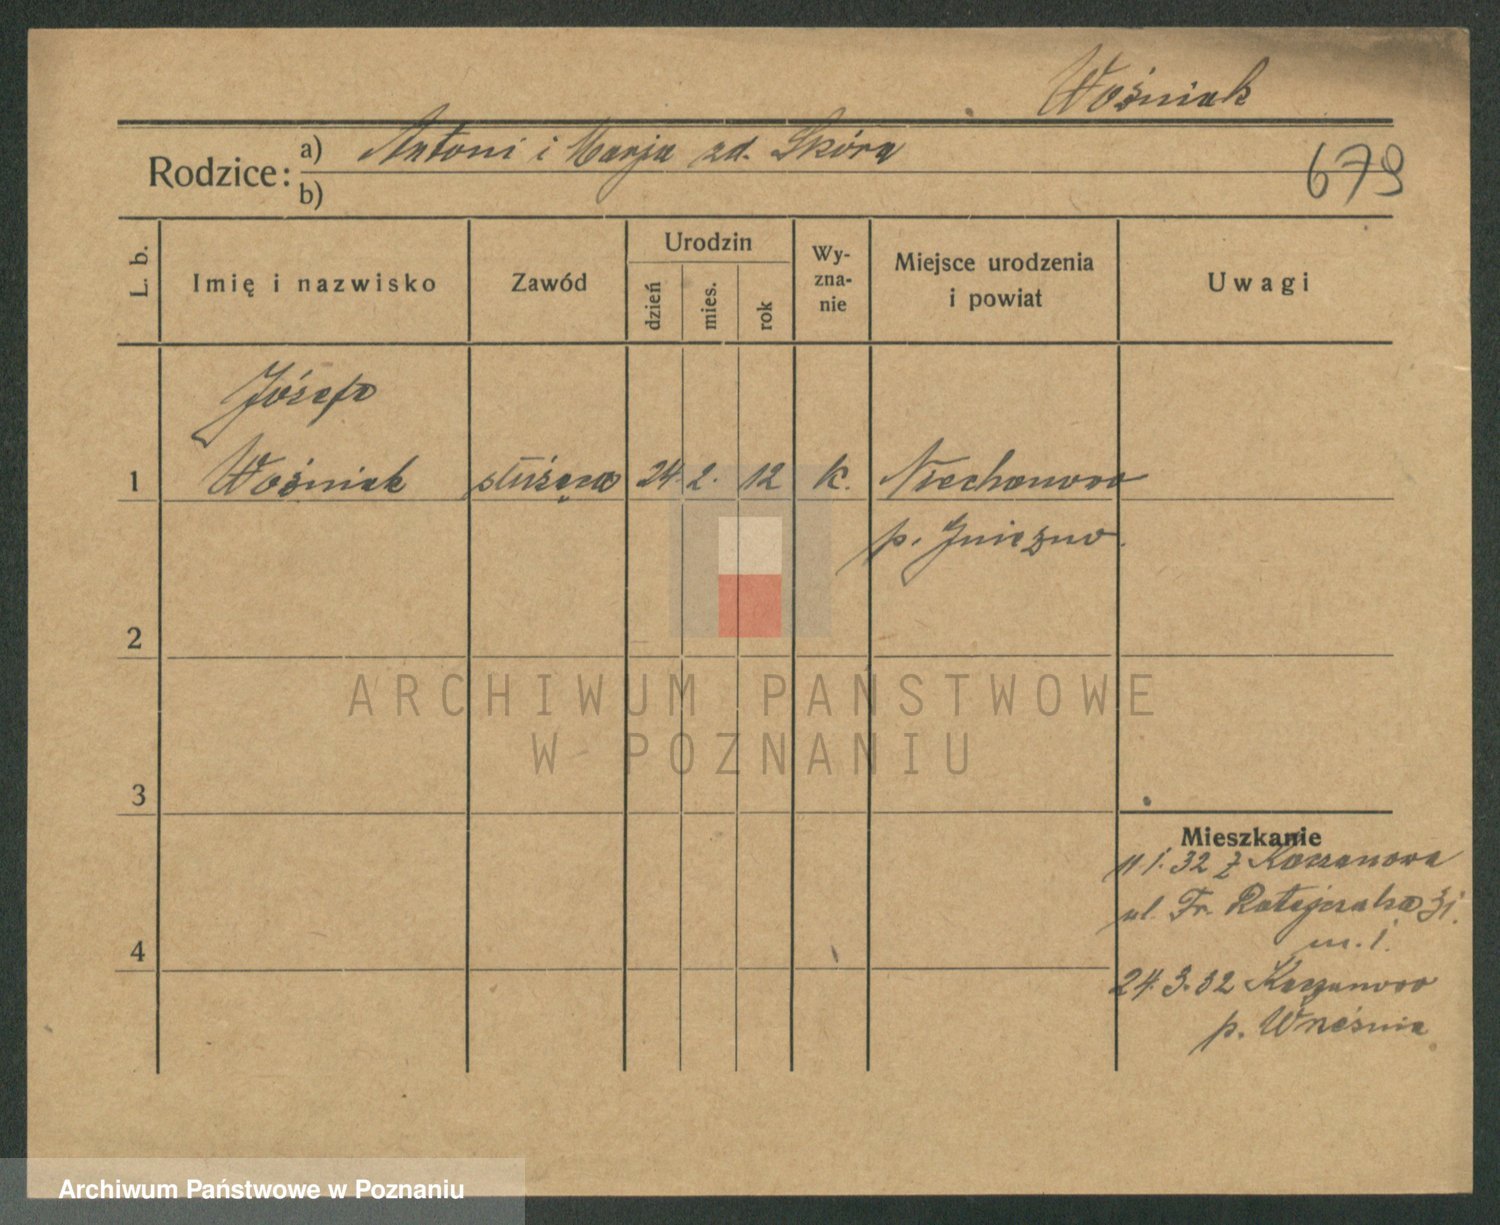 Wośniak
Rodzice: a) Antoni i Marja zd. Skóra
b)
679
L. b.
Imię i nazwisko
Zawód
Urodzin
dzień
mies.
rok
Wy-
zna-
nie
Miejsce urodzenia
i powiat
Uwagi
Józefa
1 Wośniak służąca 24. 2. 12 K. Niechanowo
p. Gniezno.
2
3
4
Mieszkanie
11.1.32 z
ul. Fr. Ratajczaka 31.
m. 1.
24.3.32
p. Września
ARCHIWUM PAŃSTWOWE
W POZNANIU
Archiwum Państwowe w Poznaniu